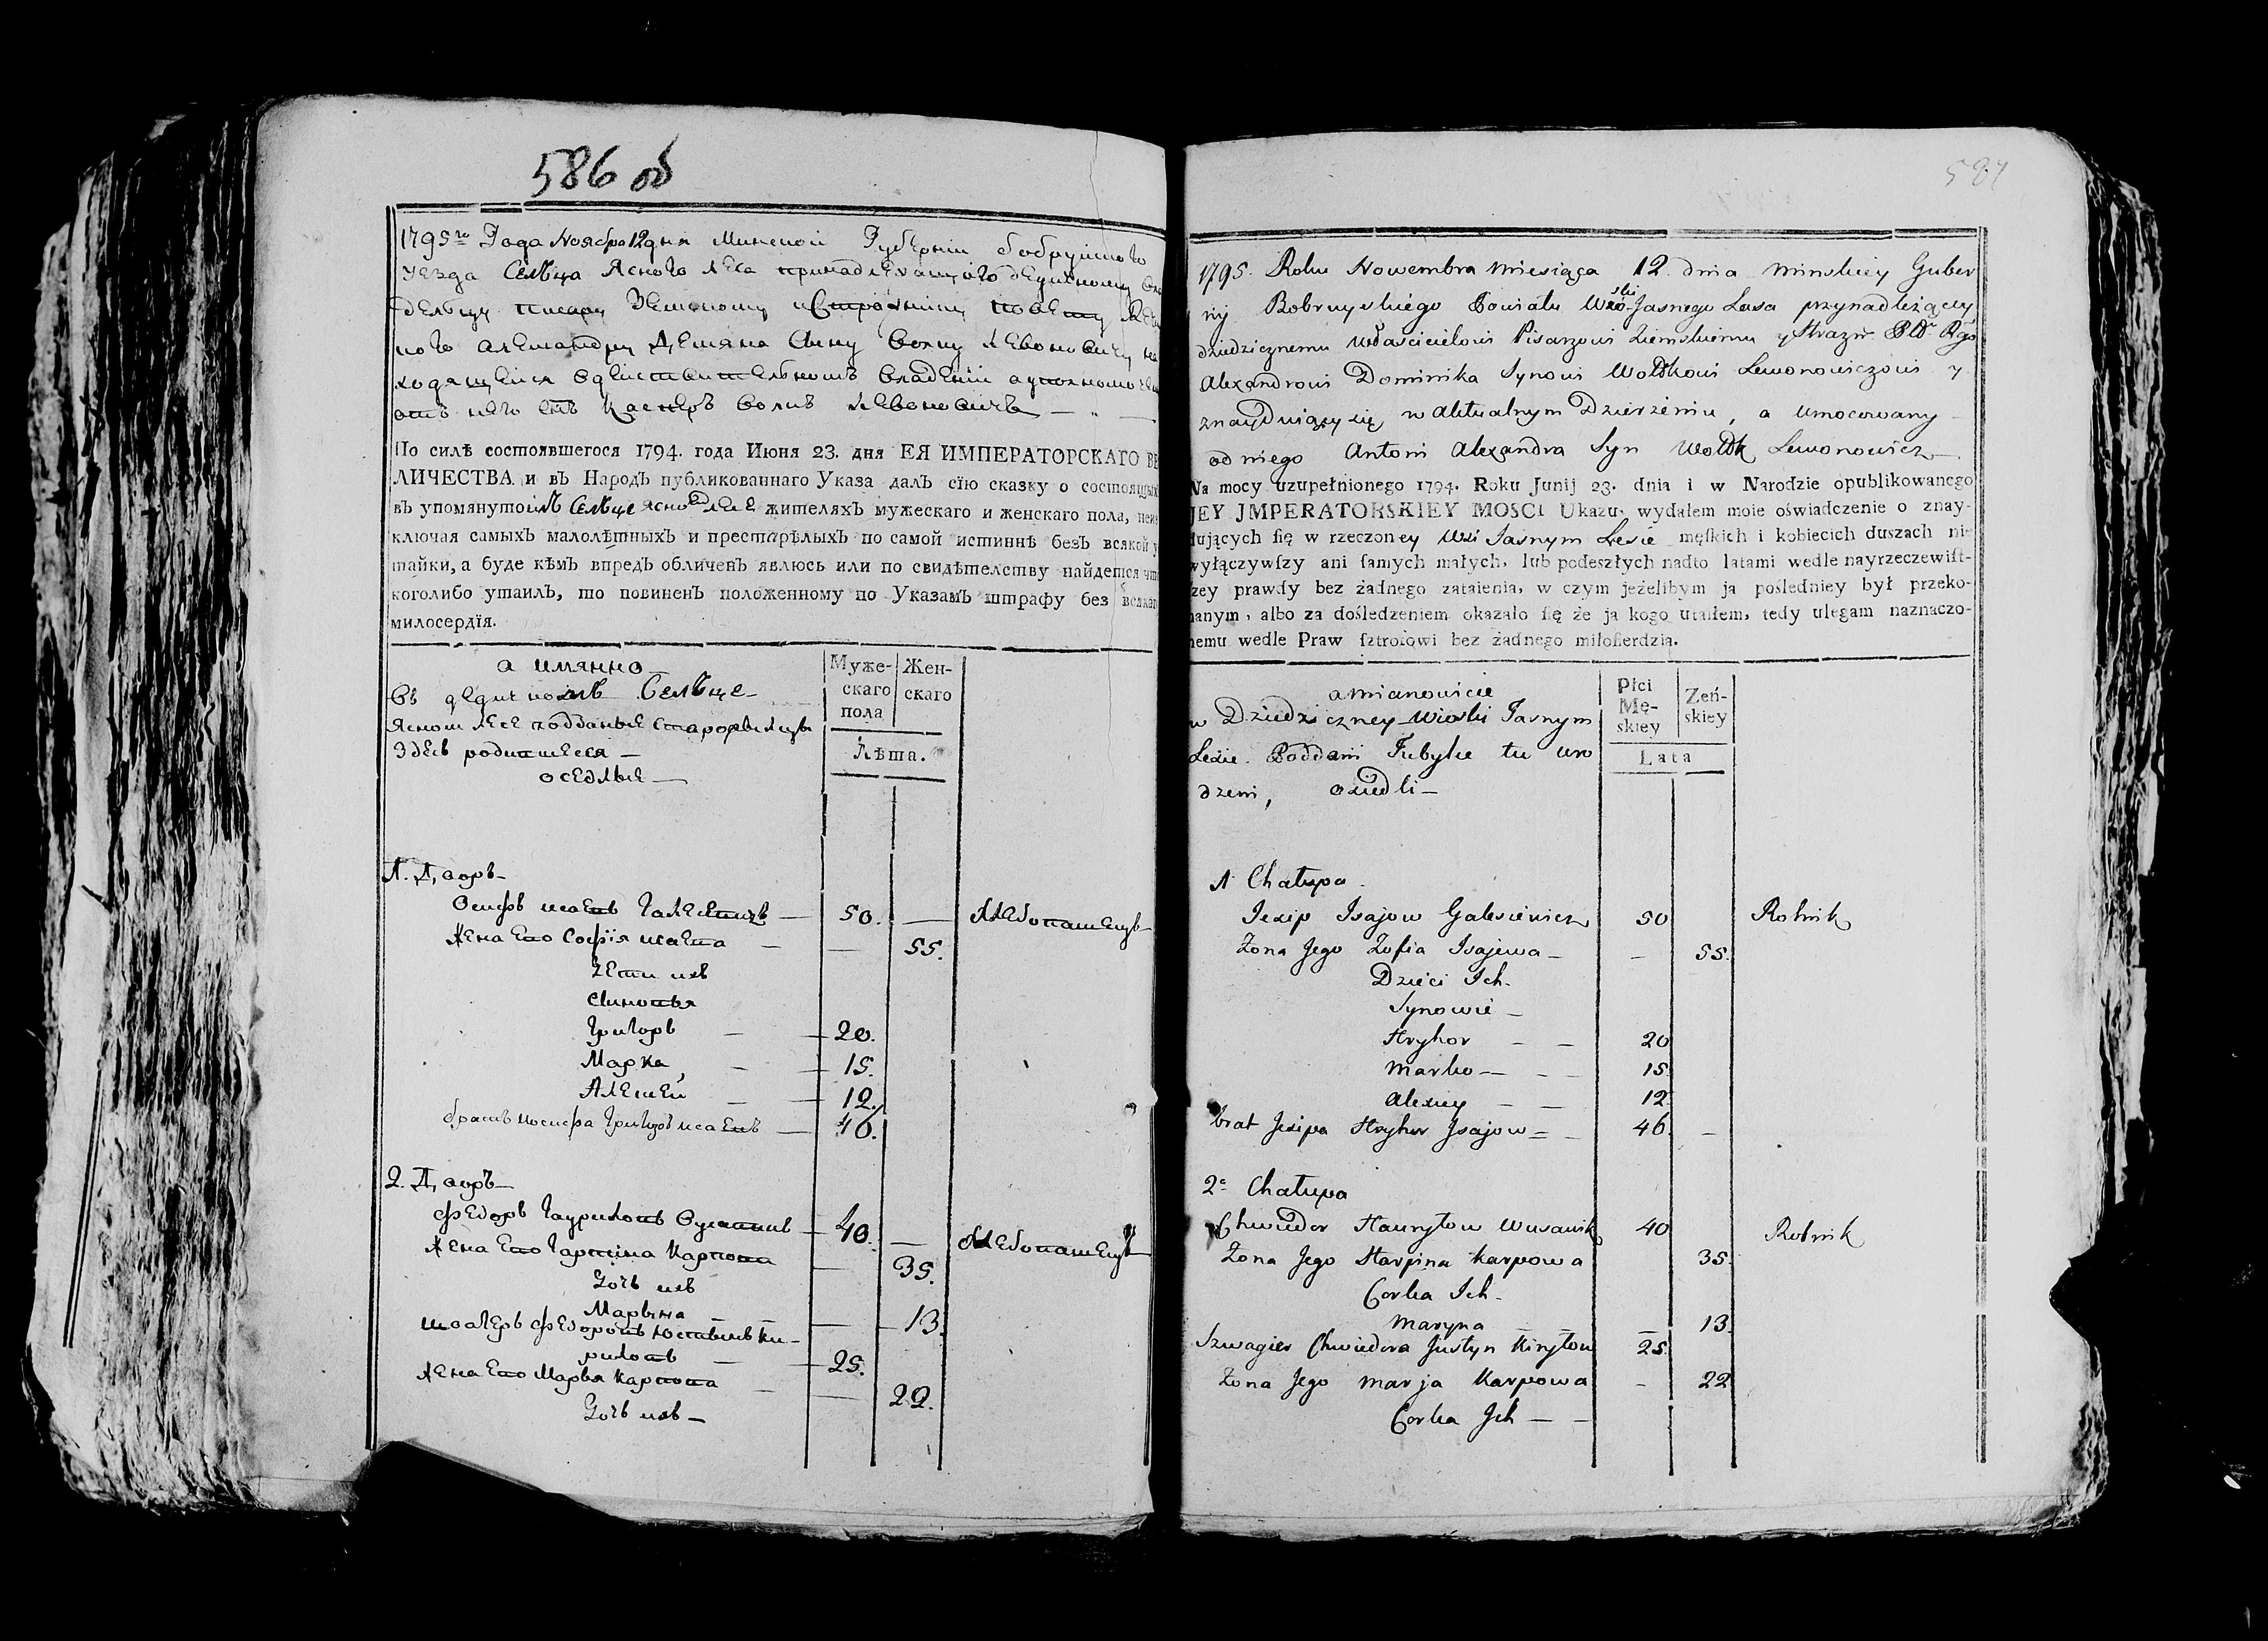 586 об
1795го Года Ноября 12 дня Минской Губернии Бобруйского
уезда Сельца Ясного Леса принадлежащого дедичному
дельцу писару Земскому и Стражнику повету
ного Александру Сыну Волку Левоновичу на
ходящемся в действительномъ владении а уполномочен
отъ него Волкъ Левоновичъ
По силѣ состоявшегося 1794. года Июня 23. дня ЕЯ ИМПЕРАТОРСКАГО ВЕ
ЛИЧЕСТВА и въ Народъ публикованнаго Указа далъ сїю сказку о состоящихъ
въ упомянутомъ Сельце Ясном Лесе жителяхъ мужескаго и женскаго пола, неис
ключая самыхъ малолѣтныхъ и престарѣлыхъ по самой истиннѣ безъ всякой у
тайки, а буде кѣмъ впредъ обличенъ явлюсь или по свидѣтелству найдется что
коголибо утаилъ, то повиненъ положенному по Указамъ штрафу без всякаго
милосердїя.
а имянно
Въ дедичномъ Сельце
Ясном Лесе подданые старожилцы
Здесь родившееся —
оседлые —
Муже-
скаго
пола
Жен-
скаго
Лѣта.
1. Дворъ —
Осифъ Исаевъ Галесевичъ — 50. — Хлебопашецъ
Жена Его Софїя Исаева — — 55.
Дети ихъ
Сыновья
Григоръ — 20.
Марка, — 15.
Алексей — 12.
братъ Иосифа Григоръ Исаевъ — 46.
2. Дворъ —
Федоръ Гаурыловъ — 40. — Хлебопашецъ
Жена Его Гарпина Карпова — 35.
Дочь ихъ
Марына — 13.
швагеръ Федоровъ Юстынъ Ки-
риловъ — 25.
Жена Его Марья Карпова — 22.
Дочь ихъ —
587
1795. Roku Nowembra Miesiąca 12 dnia Minskiey Guber
nij Bobruyskiego Powiatu Wsi Jasnego Lasa przynadleżącey
dziedzicznemu właścicielowi Pisarzowi Ziemskiemu y Strażn. Ptu Rzgo
Alexandrowi Dominika Synowi Wołkowi Lewonowiczowi y
znayduiącey się w aktualnym Dzierżeniu, a umocowany
od niego Antoni Alexandra Syn Wołk Lewonowicz —
Na mocy uzupełnionego 1794. Roku Junij 23. dnia i w Narodzie opublikowanego
JEY JMPERATORSKIEY MOSCI Ukazu, wydałem moie oświadczenie o znay-
dujących ſię w rzeczoney Wsi Jasnym Lesie męſkich i kobiecich duszach nie
wyłączywſzy ani ſamych małych, lub podeszłych nadto latami wedle nayrzeczewiſt-
szey prawdy bez żadnego zataienia, w czym jeżelibym ja pośledniey był przeko-
nanym, albo za dośledzeniem okazało ſię że ja kogo utaiłem, tedy ulegam naznaczo-
nemu wedle Praw ſztrofowi bez żadnego miłoſierdzia.
a mianowicie
w Dziedziczney Wioski Jasnym
Lesie. Poddani Tubylce tu uro
dzeni, osiedli —
Płci
Mę-
skiey
Zeń-
skiey
Lata
1 Chałupa
Jezip Isajow Galesiewicz 50 Rolnik
Żona Jego Zofia Isajewa — — 55.
Dzieci Ich.
Synowie —
Hryhor — — 20
Marko — — 15
Alexiey — — 12
brat Jezipa Hryhor Isajow — 46. —
2a Chałupa
Chwiedor Hauryłow Wusawik 40 Rolnik
Żona Jego Harpina Karpowa 35.
Corka Ich.
Maryna — — 13.
Szwagier Chwiedora Justyn Kiryłow 25.
Żona Jego Marja Karpowa — 22
Corka Ich — —